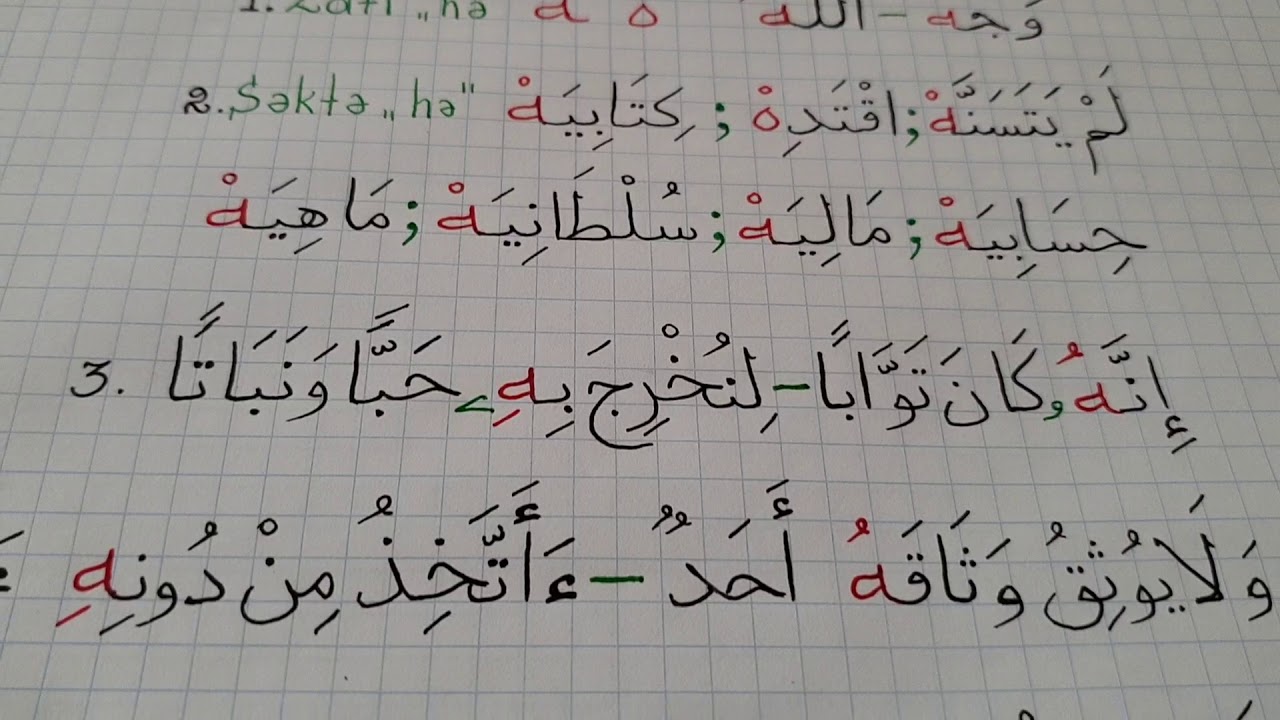 1. Zati „hə ـه ه الله – وَجه
2. Səktə „hə" لَمْ يَتَسَنَّهْ ; اقْتَدِهْ ; كِتَابِيَهْ
حِسَابِيَهْ ; مَالِيَهْ ; سُلْطَانِيَهْ ; مَاهِيَهْ
3. إِنَّهُۥ كَانَ تَوَّابًا – لِنُخْرِجَ بِهِۦ حَبًّا وَنَبَاتًا
وَلَا يُوثِقُ وَثَاقَهُ أَحَدٌ – ءَأَتَّخِذُ مِنْ دُونِهِ